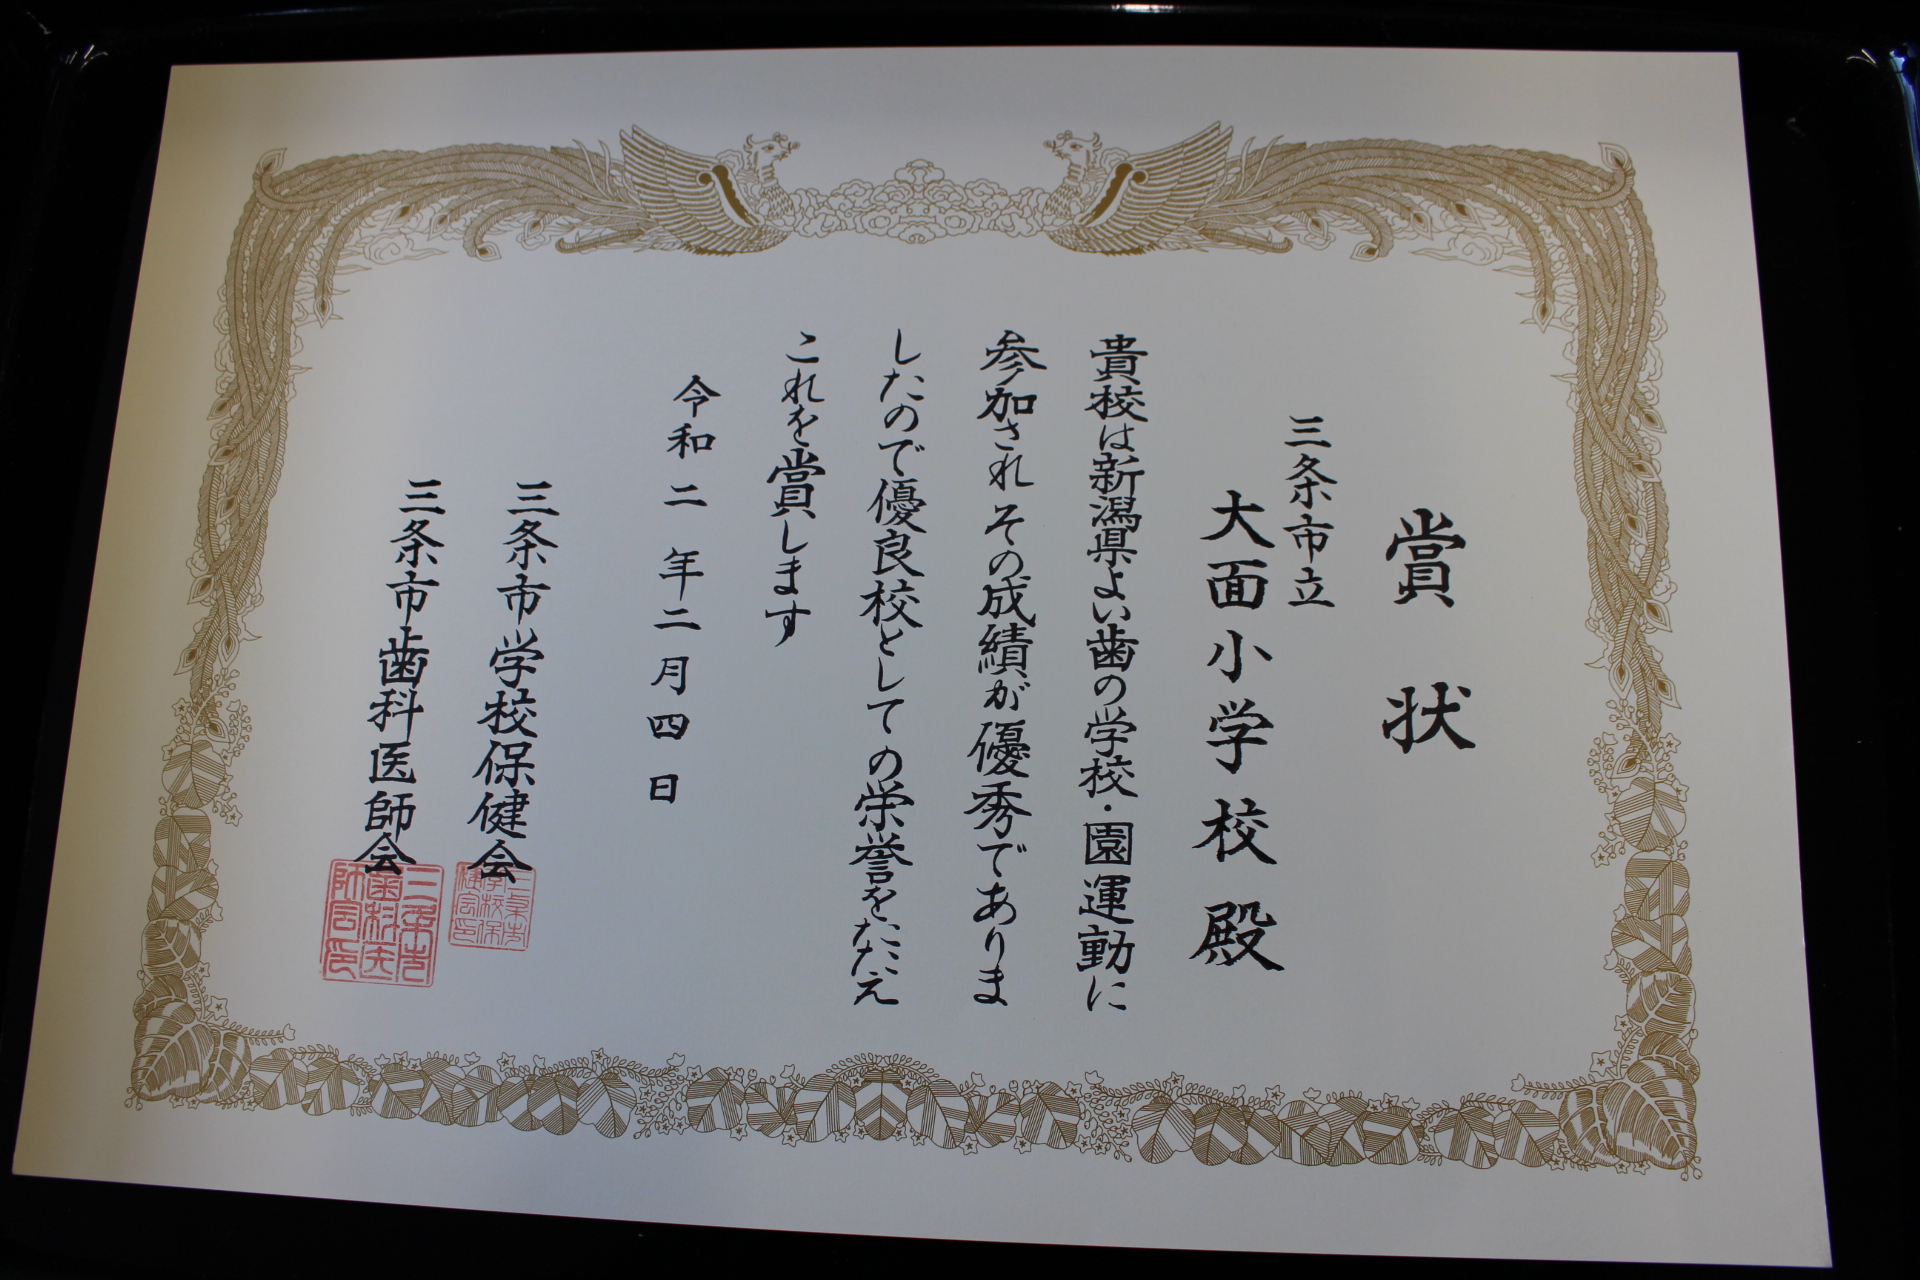 賞状
三条市立
大面小学校殿
貴校は新潟県よい歯の学校・園運動に
参加されその成績が優秀でありま
したので優良校としての栄誉をたたえ
これを賞します
令和二年二月四日
三条市学校保健会
三条市歯科医師会
三条市学校保健会印
三条市歯科医師会印